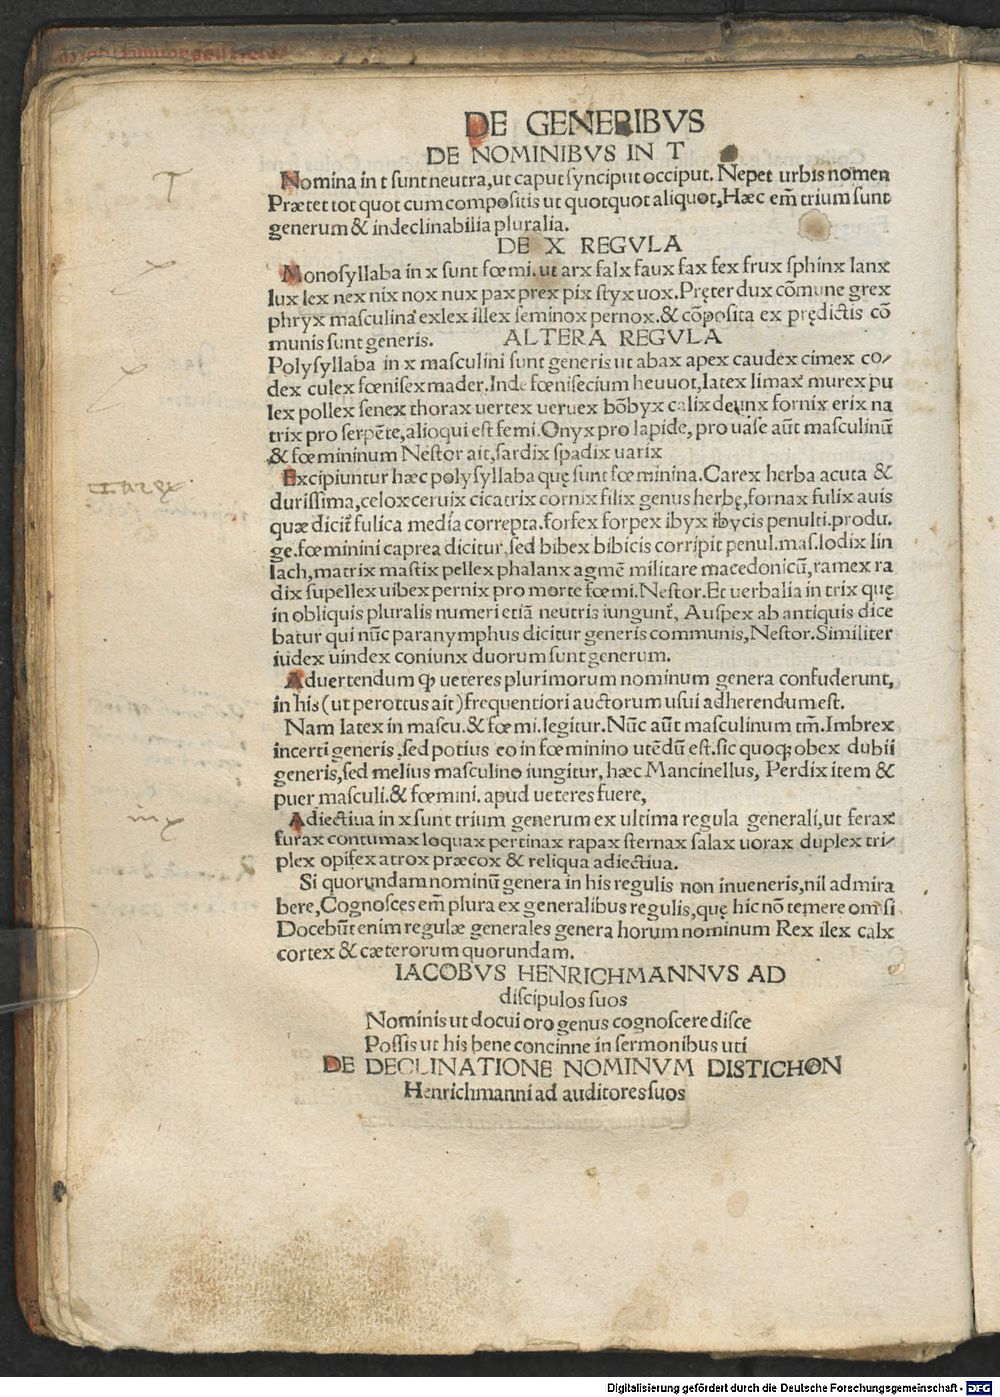 DE GENERIBVS
DE NOMINIBVS IN T
Nomina in t ſunt neutra,ut caput ſynciput occiput. Nepet urbis nomen
Prætet tot quot cum compoſitis ut quotquot aliquot,Hæc em̃ trium ſunt
generum & indeclinabilia pluralia.
DE X REGVLA
Monoſyllaba in x ſunt fœmi. ut arx falx faux fax fex frux ſphinx lanx
lux lex nex nix nox nux pax prex pix ſtyx uox. Pręter dux cõmune grex
phryx maſculina exlex illex ſeminox pernox.& cõpoſita ex prędictis cõ
munis ſunt generis. ALTERA REGVLA
Polyſyllaba in x maſculini ſunt generis ut abax apex caudex cimex co/
dex culex fœniſex mader.Inde fœniſecium heuuot,latex limax murex pu
lex pollex ſenex thorax uertex ueruex bõbyx calix deunx fornix erix na
trix pro ſerpẽte,alioqui eſt femi.Onyx pro lapide, pro uaſe aũt maſculinũ
& fœmininum Neſtor ait,ſardix ſpadix uarix
Excipiuntur hæc polyſyllaba quę ſunt fœminina.Carex herba acuta &
duriſſima,celox ceruix cicatrix cornix filix genus herbę,fornax fulix auis
quæ dicit̃ fulica media correpta.forfex forpex ibyx ibycis penulti.produ.
ge.fœminini caprea dicitur,ſed bibex bibicis corripit penul.maſ.lodix lin
lach,matrix maſtix pellex phalanx agmẽ militare macedonicũ,ramex ra
dix ſupellex uibex pernix pro morte fœmi.Neſtor.Et uerbalia in trix quę
in obliquis pluralis numeri etiã neutris iungunt̃, Auſpex ab antiquis dice
batur qui nũc paranymphus dicitur generis communis,Neſtor.Similiter
iudex uindex coniunx duorum ſunt generum.
Aduertendum ꝙ ueteres plurimorum nominum genera confuderunt,
in his (ut perottus ait) frequentiori auctorum uſui adherendum eſt.
Nam latex in maſcu.& fœmi.legitur.Nũc aũt maſculinum tm̃.Imbrex
incerti generis,ſed potius eo in fœminino utẽdũ eſt.ſic quoq; obex dubii
generis,ſed melius maſculino iungitur, hæc Mancinellus, Perdix item &
puer maſculi.& fœmini. apud ueteres fuere,
Adiectiua in x ſunt trium generum ex ultima regula generali,ut ferax
furax contumax loquax pertinax rapax ſternax ſalax uorax duplex tri/
plex opifex atrox præcox & reliqua adiectiua.
Si quorundam nominũ genera in his regulis non inueneris,nil admira
bere,Cognoſces em̃ plura ex generalibus regulis,quę hic nõ temere omiſi
Docebũt enim regulæ generales genera horum nominum Rex ilex calx
cortex & cæterorum quorundam.
IACOBVS HENRICHMANNVS AD
diſcipulos ſuos
Nominis ut docui oro genus cognoſcere diſce
Poſſis ut his bene concinne in ſermonibus uti
DE DECLINATIONE NOMINVM DISTICHON
Henrichmanni ad auditores ſuos
T
x
x
xiu
Digitalisierung gefördert durch die Deutsche Forschungsgemeinschaft - DFG